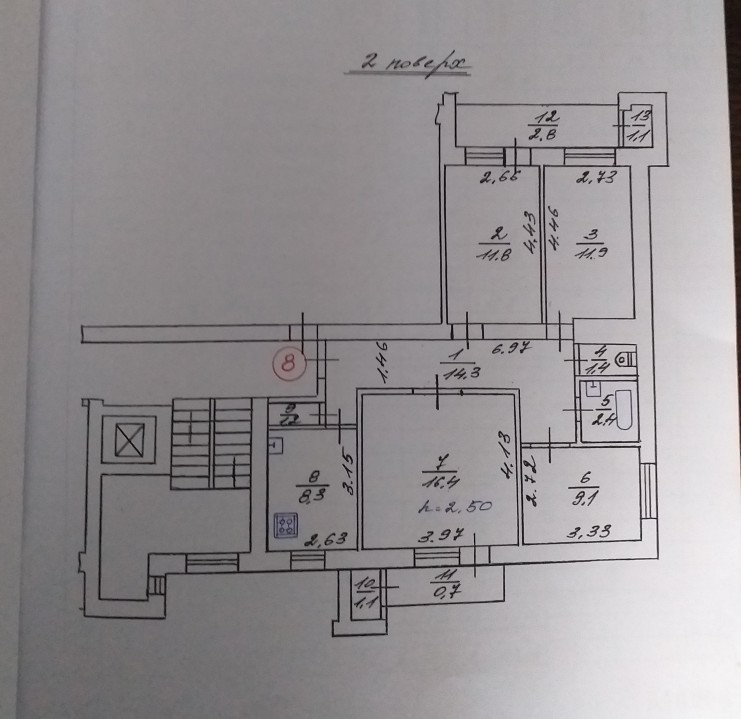 2 поверх
12
2.8
13
1.1
2,66
2,73
2
11.8
4,43
4.46
3
11.9
8
1,46
1
14,3
6.97
4
1.4
5
2.4
9
1.2
8
8,3
3.15
2,63
7
16,4
h=2,50
3.97
4.13
2.72
6
9,1
3,33
10
1,1
11
0,7